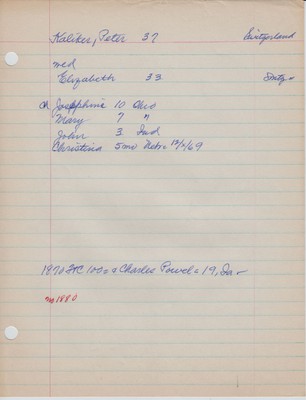 Kaliker, Peter 37 Switzerland
med
Elizabeth 33 Switz
Ch Josephine 10 Ohio
Mary 7 "
John 3 Ind
Christina 5 mo Nebr 12/69
1870 Charles Powel 19, Ia
m 1880